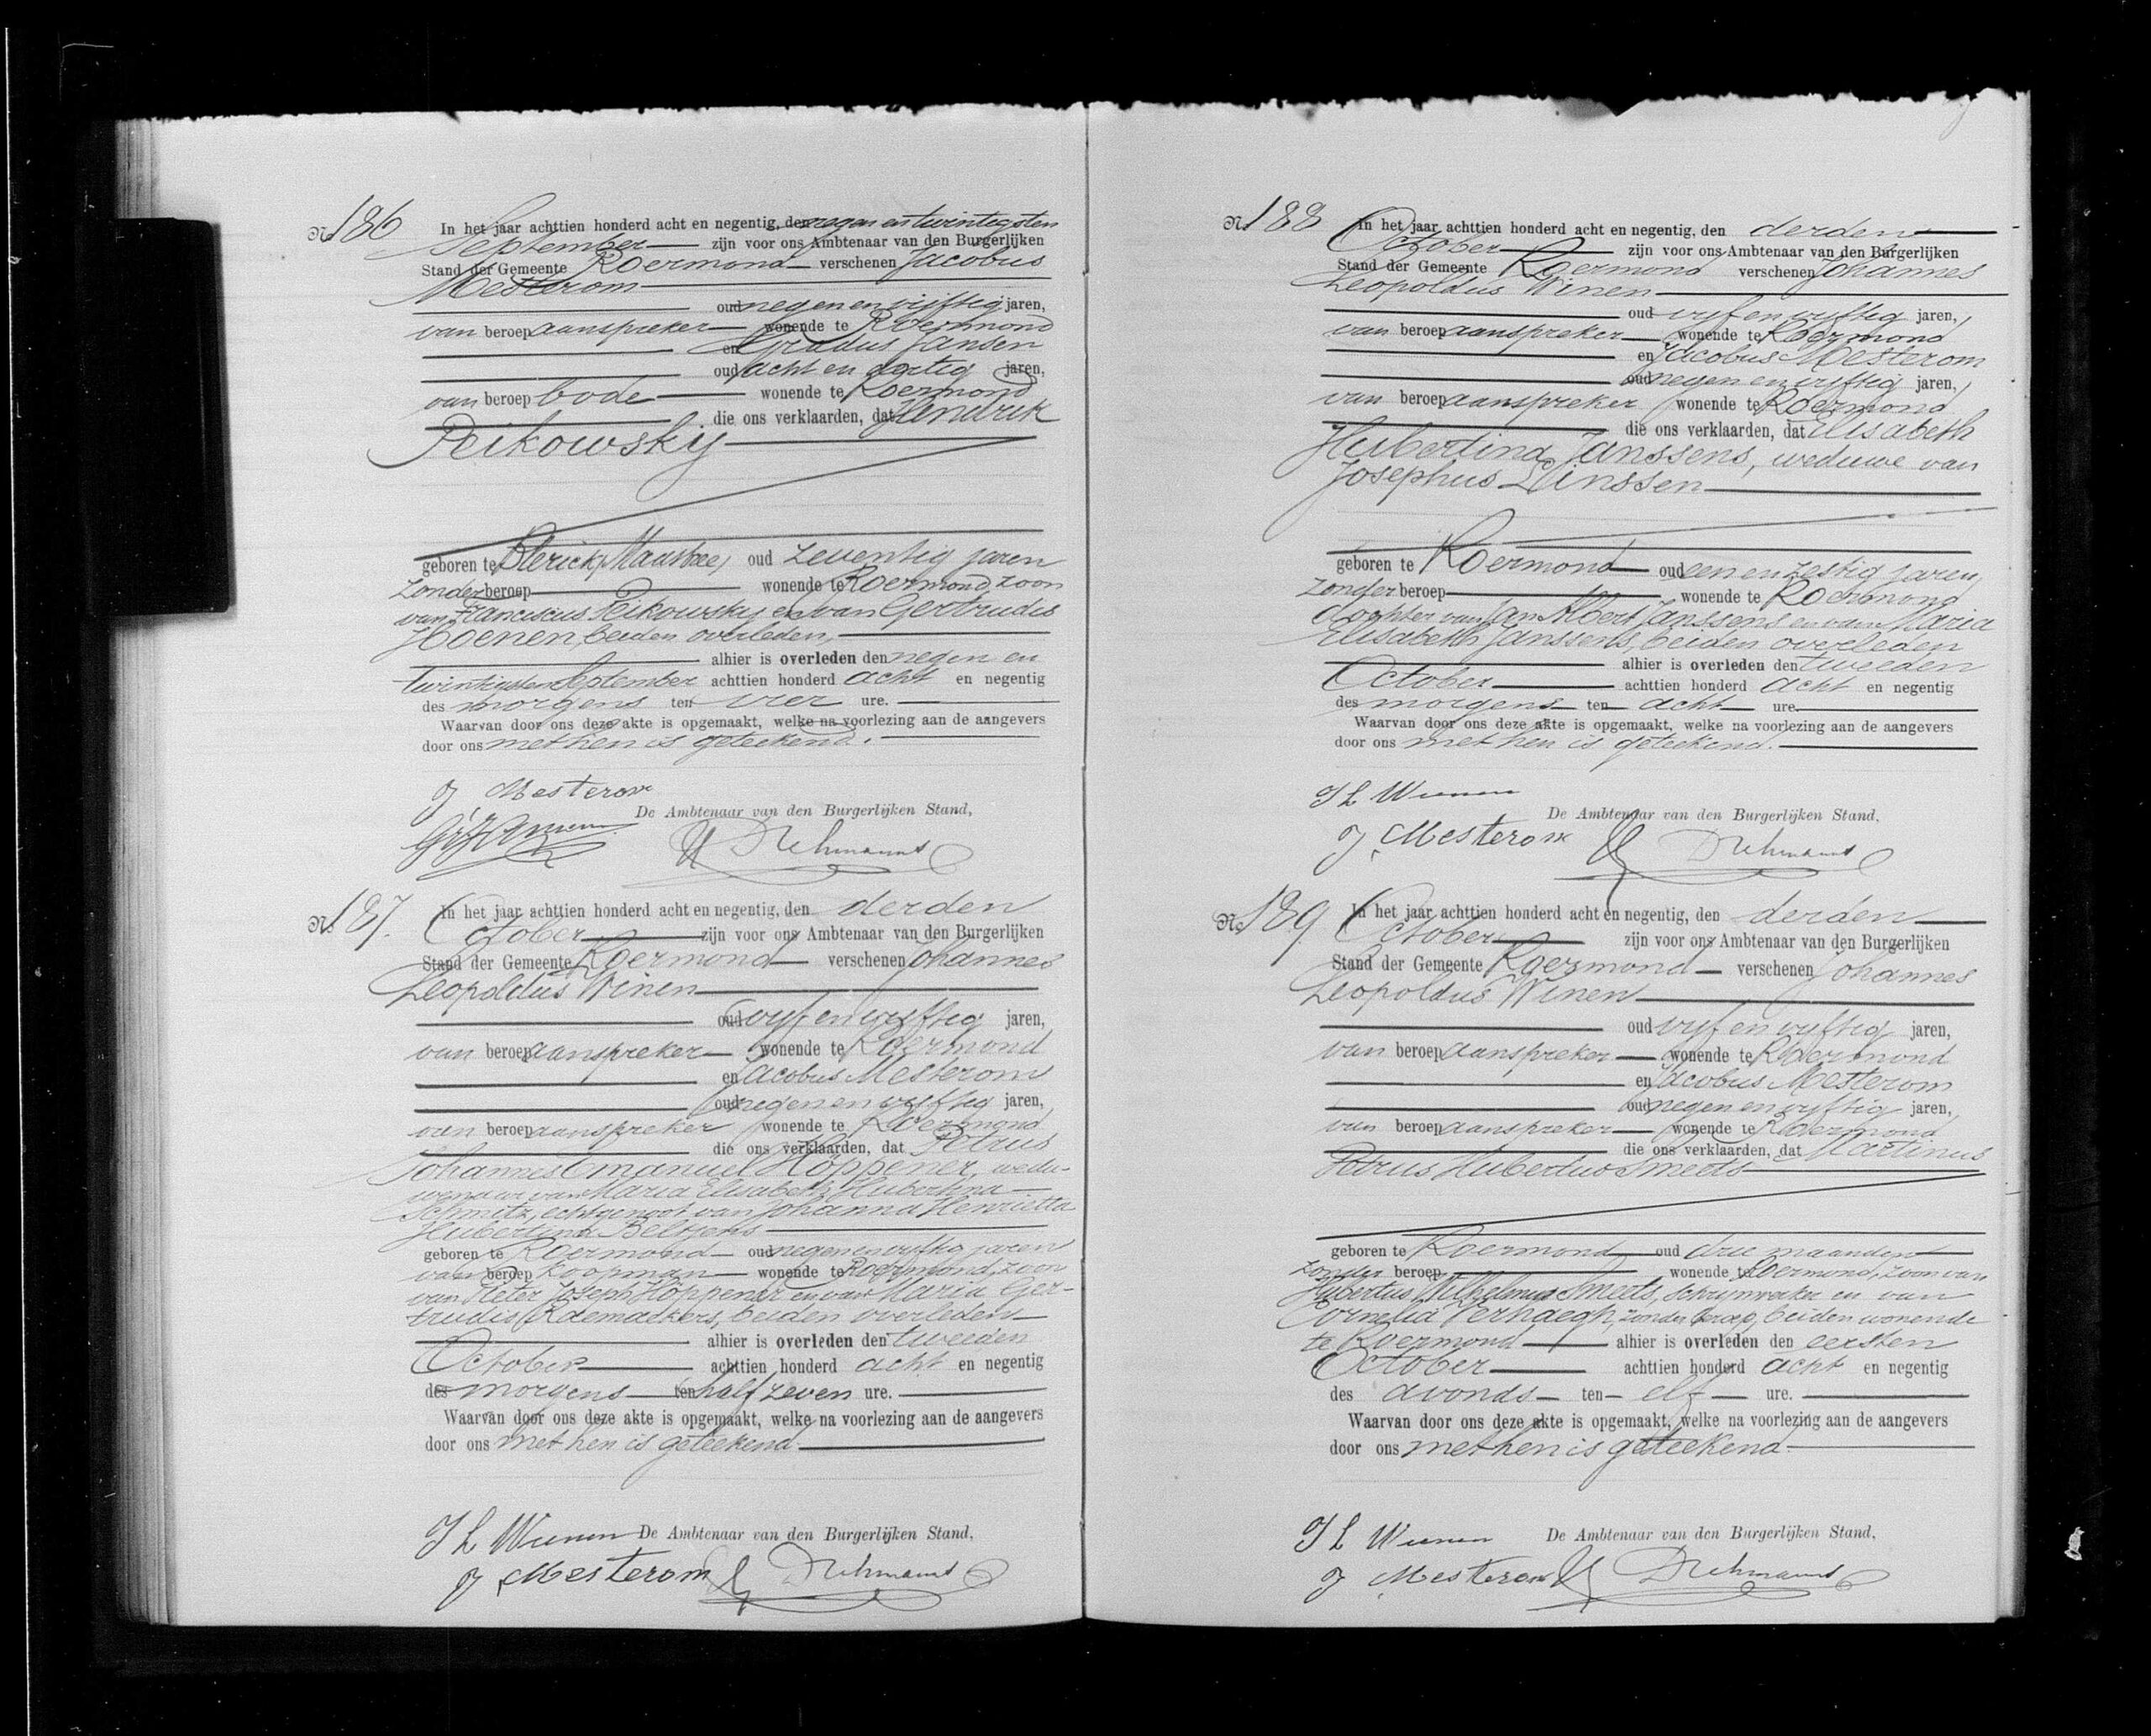 No 186 In het jaar achttien honderd acht en negentig, den negen en twintigsten
September zijn voor ons Ambtenaar van den Burgerlijken
Stand der Gemeente Roermond verschenen Jacobus
Mesterom
oud negen en vijftig jaren,
van beroep aanspreker wonende te Roermond
en Gradus Jansen
oud acht en dertig jaren,
van beroep bode wonende te Roermond
die ons verklaarden, dat Hendrik
Peikowsky
geboren te Blerick, Maasbree, oud zeventig jaren
zonder beroep wonende te Roermond, zoon
van Franciscus Peikowsky en van Gertrudis
Hoenen, beiden overleden,
alhier is overleden den negen en
twintigsten September achttien honderd acht en negentig
des morgens ten vier ure.
Waarvan door ons deze akte is opgemaakt, welke na voorlezing aan de aangevers
door ons met hen is geteekend.
J Mesterom
De Ambtenaar van den Burgerlijken Stand,
No 187. In het jaar achttien honderd acht en negentig, den derden
October zijn voor ons Ambtenaar van den Burgerlijken
Stand der Gemeente Roermond verschenen Johannes
Leopoldus Winen
oud vyf en vyftig jaren,
van beroep aanspreker wonende te Roermond
en Jacobus Mesterom
oud negen en vyftig jaren,
van beroep aanspreker wonende te Roermond
die ons verklaarden, dat Petrus
Johannes Emanuel Höppener, wedu-
wenaar van Maria Elisabeth Hubertina
Schmitz, echtgenoot van Johanna Henrietta
Hubertina Beltjens
geboren te Roermond oud negen en vyftig jaren
van beroep koopman wonende te Roermond, zoon
van Pieter Joseph Höppener en van Maria Ger-
trudis Raemaekers, beiden overleden
alhier is overleden den tweeden
October achttien honderd acht en negentig
des morgens ten half zeven ure.
Waarvan door ons deze akte is opgemaakt, welke na voorlezing aan de aangevers
door ons met hen is geteekend
J L Wienen De Ambtenaar van den Burgerlijken Stand,
J Mesterom
No 188 In het jaar achttien honderd acht en negentig, den derden
October zijn voor ons Ambtenaar van den Burgerlijken
Stand der Gemeente Roermond verschenen Johannes
Leopoldus Winen
oud vyf en vyftig jaren,
van beroep aanspreker wonende te Roermond
en Jacobus Mesterom
oud negen en vyftig jaren,
van beroep aanspreker wonende te Roermond
die ons verklaarden, dat Elisabeth
Hubertina Janssens, weduwe van
Josephus Linssen
geboren te Roermond oud een en zestig jaren,
zonder beroep wonende te Roermond
dochter van Jan Albert Janssens en van Maria
Elisabeth Janssens, beiden overleden
alhier is overleden den tweeden
October achttien honderd acht en negentig
des morgens ten acht ure.
Waarvan door ons deze akte is opgemaakt, welke na voorlezing aan de aangevers
door ons met hen is geteekend.
J L Wienen
De Ambtenaar van den Burgerlijken Stand,
J Mesterom
No 189 In het jaar achttien honderd acht en negentig, den derden
October zijn voor ons Ambtenaar van den Burgerlijken
Stand der Gemeente Roermond verschenen Johannes
Leopoldus Winen
oud vyf en vyftig jaren,
van beroep aanspreker wonende te Roermond
en Jacobus Mesterom
oud negen en vyftig jaren,
van beroep aanspreker wonende te Roermond
die ons verklaarden, dat Martinus
Petrus Hubertus Smeets
geboren te Roermond oud drie maanden
zonder beroep wonende te Roermond, zoon van
Hubertus Wilhelmus Smeets, schrynwerker en van
Cornelia Verhaegh, zonder beroep, beiden wonende
te Roermond alhier is overleden den eersten
October achttien honderd acht en negentig
des avonds ten elf ure.
Waarvan door ons deze akte is opgemaakt, welke na voorlezing aan de aangevers
door ons met hen is geteekend
J L Wienen De Ambtenaar van den Burgerlijken Stand,
J Mesterom